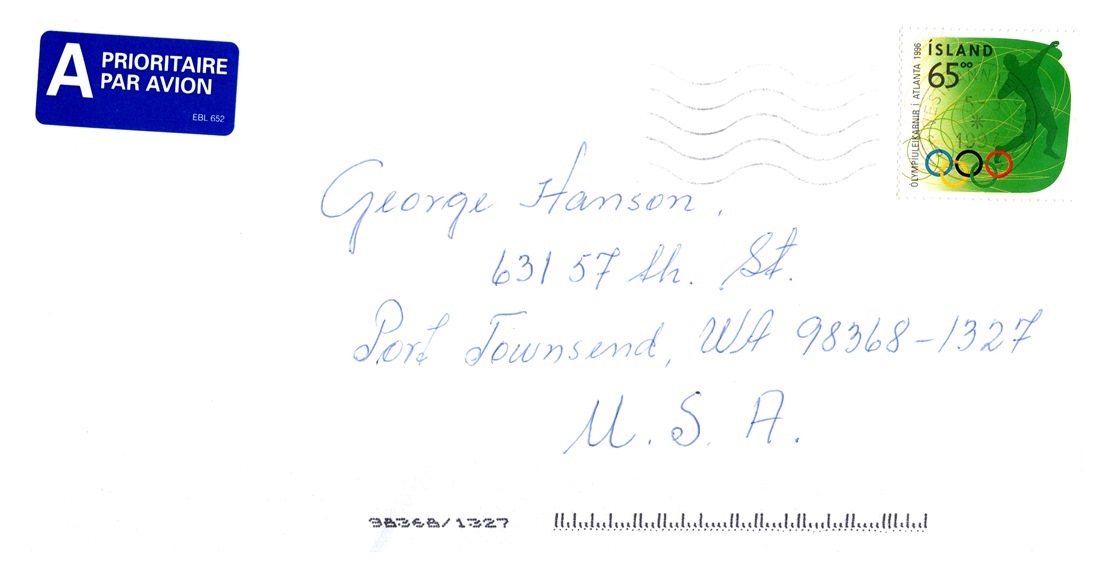 A PRIORITAIRE
PAR AVION
EBL 652
ÍSLAND
65⁰⁰
ÓLYMPÍULEIKARNIR Í ATLANTA 1996
1997
George Hanson.
631 57 th. St.
Port Townsend, WA 98368-1327
U. S. A.
98368/1327